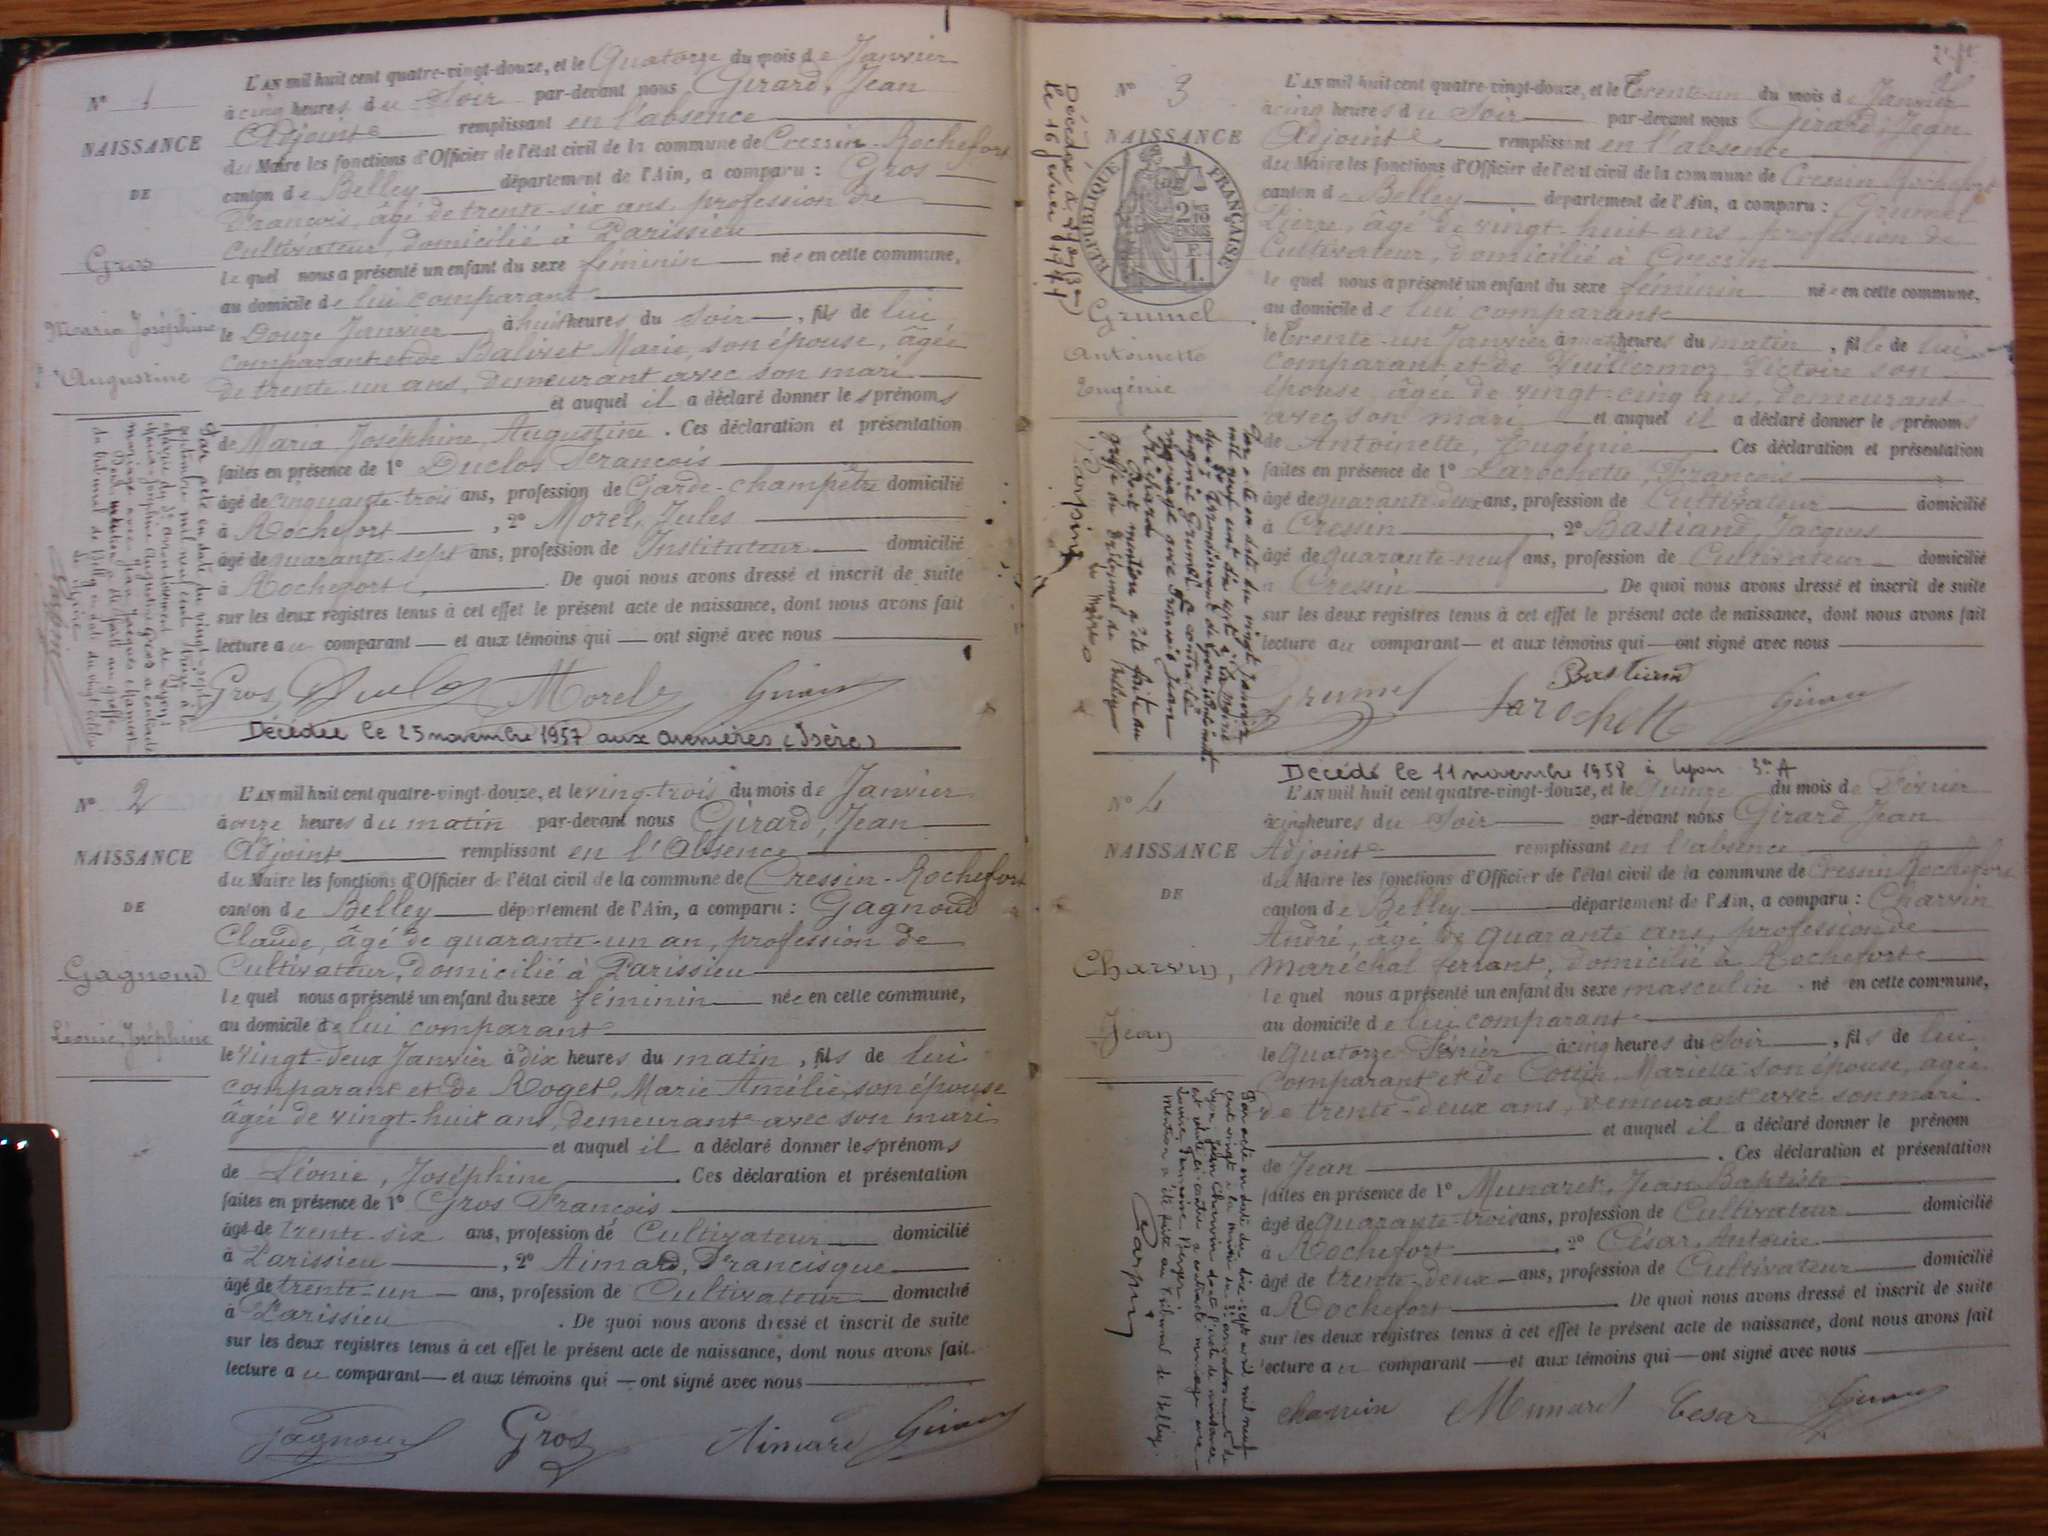 N° 1
NAISSANCE
DE
Gros
Maria Joséphine
Augustine
L'AN mil huit cent quatre-vingt-douze, et le Quatorze du mois de Janvier
à cinq heures du Soir par-devant nous Girard, Jean
Adjoint remplissant en l'absence
du Maire les fonctions d'Officier de l'état civil de la commune de Cressin-Rochefort
canton de Belley département de l'Ain, a comparu : Gros
François, âgé de trente-six ans, profession de
Cultivateur, domicilié à Parissieu
lequel nous a présenté un enfant du sexe féminin née en cette commune,
au domicile de lui comparant
le Douze Janvier à huit heures du Soir, fils de lui
comparant et de Balivet Marie, son épouse, âgée
de trente-un ans, demeurant avec son mari
et auquel il a déclaré donner les prénoms
de Maria Joséphine, Augustine. Ces déclaration et présentation
faites en présence de 1° Duclos François
âgé de cinquante-trois ans, profession de Garde-champêtre domicilié
à Rochefort, 2° Morel, Jules
âgé de quarante-sept ans, profession de Instituteur domicilié
à Rochefort. De quoi nous avons dressé et inscrit de suite
sur les deux registres tenus à cet effet le présent acte de naissance, dont nous avons fait
lecture au comparant et aux témoins qui ont signé avec nous
Gros Duclos Morel Girard
Décédée le 25 novembre 1957 aux Avenières (Isère)
N° 2
NAISSANCE
DE
Gagnoud
Léonie, Joséphine
L'AN mil huit cent quatre-vingt-douze, et le vingt-trois du mois de Janvier
à onze heures du matin par-devant nous Girard, Jean
Adjoint remplissant en l'Absence
du Maire les fonctions d'Officier de l'état civil de la commune de Cressin-Rochefort
canton de Belley département de l'Ain, a comparu : Gagnoud
Claude, âgé de quarante-un an, profession de
Cultivateur, domicilié à Parissieu
lequel nous a présenté un enfant du sexe féminin née en cette commune,
au domicile de lui comparant
le vingt-deux Janvier à dix heures du matin, fils de lui
comparant et de Roget, Marie Amélie, son épouse
âgée de vingt-huit ans, demeurant avec son mari
et auquel il a déclaré donner les prénoms
de Léonie, Joséphine. Ces déclaration et présentation
faites en présence de 1° Gros François
âgé de trente-six ans, profession de Cultivateur domicilié
à Parissieu, 2° Aimard, Francisque
âgé de trente-un ans, profession de Cultivateur domicilié
à Parissieu. De quoi nous avons dressé et inscrit de suite
sur les deux registres tenus à cet effet le présent acte de naissance, dont nous avons fait
lecture au comparant et aux témoins qui ont signé avec nous
Gagnoud Gros Aimard Girard
N° 3
NAISSANCE
RÉPUBLIQUE FRANÇAISE
Grumel
Antoinette
Eugénie
L'AN mil huit cent quatre-vingt-douze, et le Trente-un du mois de Janvier
à cinq heures du Soir par-devant nous Girard, Jean
Adjoint remplissant en l'absence
du Maire les fonctions d'Officier de l'état civil de la commune de Cressin Rochefort
canton de Belley département de l'Ain, a comparu : Grumel
Pierre, âgé de vingt-huit ans, profession de
Cultivateur, domicilié à Cressin
lequel nous a présenté un enfant du sexe féminin née en cette commune,
au domicile de lui comparant
le Trente-un Janvier à heures du matin, fille de lui
comparant et de Vuillermoz Victoire son
épouse, âgée de vingt-cinq ans, demeurant
avec son mari et auquel il a déclaré donner les prénoms
de Antoinette, Eugénie. Ces déclaration et présentation
faites en présence de 1° Larochette, François
âgé de quarante-deux ans, profession de Cultivateur domicilié
à Cressin, 2° Bastiand, Jacques
âgé de quarante-neuf ans, profession de Cultivateur domicilié
à Cressin. De quoi nous avons dressé et inscrit de suite
sur les deux registres tenus à cet effet le présent acte de naissance, dont nous avons fait
lecture au comparant et aux témoins qui ont signé avec nous
Grumel Larochette Bastiand Girard
Décédé le 11 novembre 1958 à Lyon 3e A
N° 4
NAISSANCE
DE
Charvin,
Jean
L'AN mil huit cent quatre-vingt-douze, et le Quinze du mois de Février
à cinq heures du Soir par-devant nous Girard Jean
Adjoint remplissant en l'absence
du Maire les fonctions d'Officier de l'état civil de la commune de Cressin Rochefort
canton de Belley département de l'Ain, a comparu : Charvin
André, âgé de quarante ans, profession de
Maréchal ferrant, domicilié à Rochefort
lequel nous a présenté un enfant du sexe masculin né en cette commune,
au domicile de lui comparant
le Quatorze Février à cinq heures du Soir, fils de lui
comparant et de Cottin, Mariette son épouse, agée
de trente-deux ans, demeurant avec son mari.
et auquel il a déclaré donner le prénom
de Jean. Ces déclaration et présentation
faites en présence de 1° Munarek, Jean Baptiste
âgé de quarante-trois ans, profession de Cultivateur domicilié
à Rochefort, 2° César, Antoine
âgé de trente-deux ans, profession de Cultivateur domicilié
à Rochefort. De quoi nous avons dressé et inscrit de suite
sur les deux registres tenus à cet effet le présent acte de naissance, dont nous avons fait
lecture au comparant et aux témoins qui ont signé avec nous
Charvin Munaret Cesar Girard